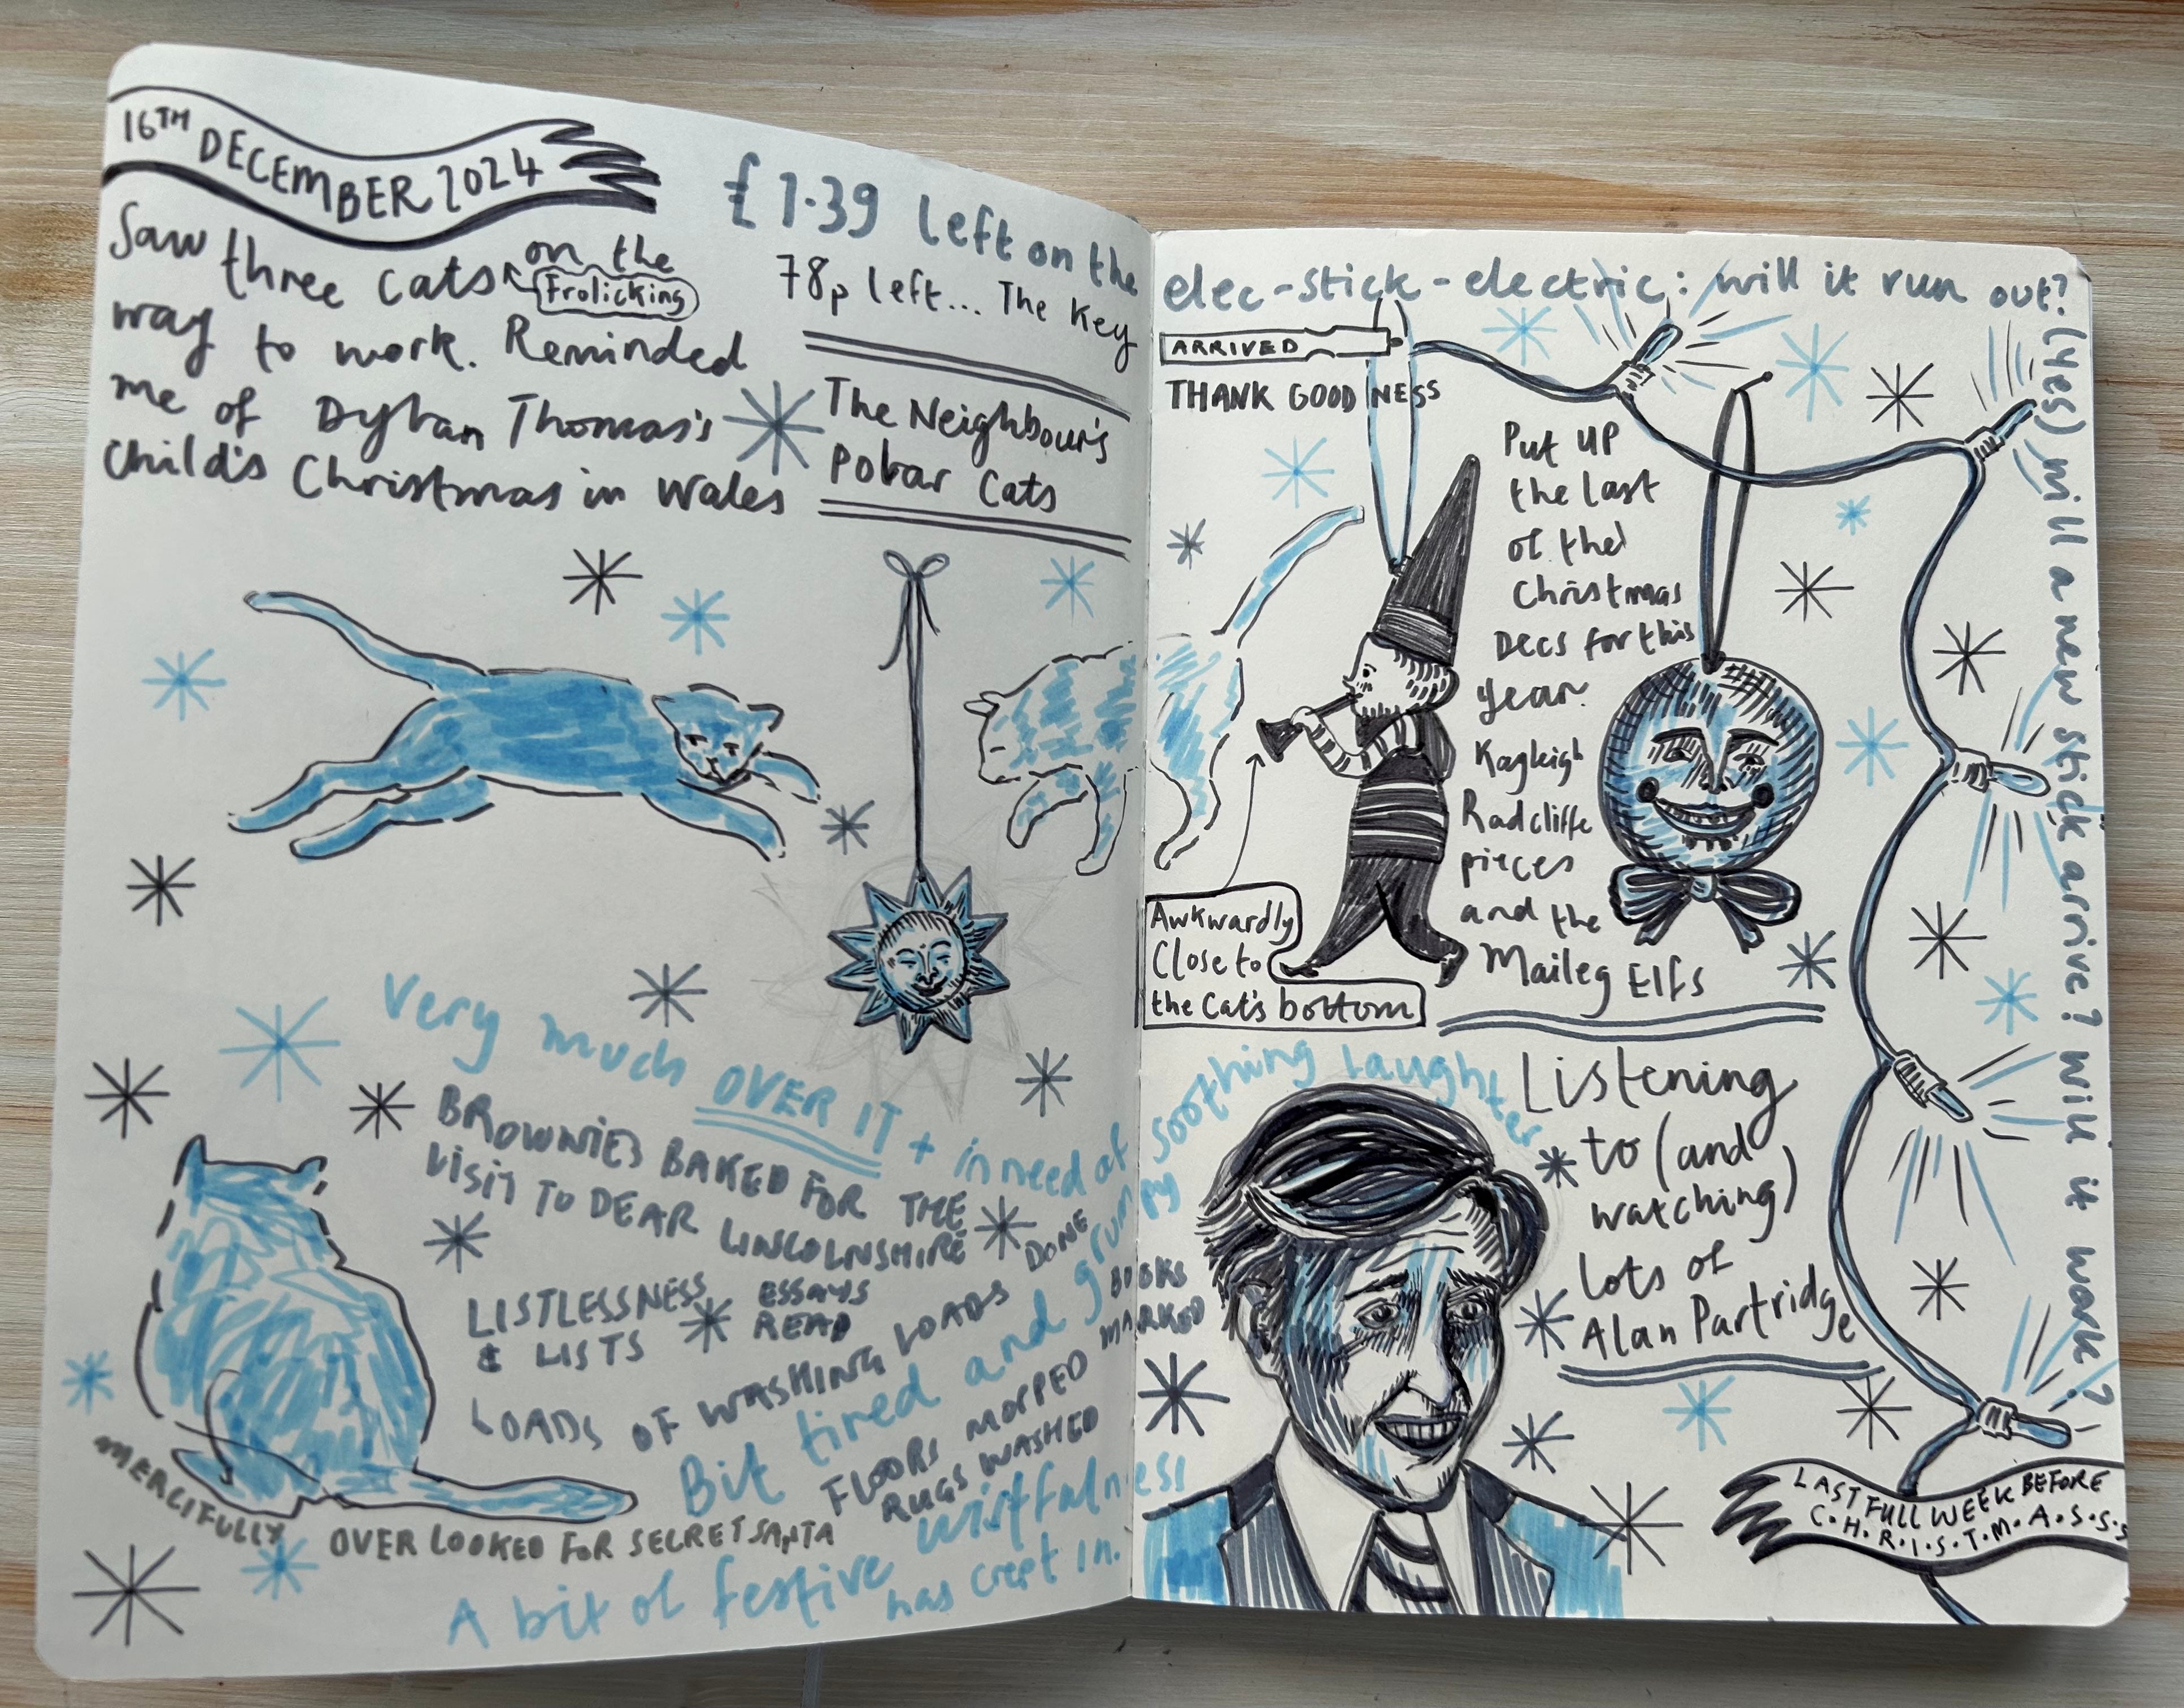 16TH DECEMBER 2024
Saw three cats on the
Frolicking
way to work. Reminded
me of Dylan Thomas's
Child's Christmas in Wales
£1.39 left on the elec-stick-electric: will it run out?
(Yes) will a new stick arrive? Will it work?
78p left... The Key
ARRIVED
THANK GOODNESS
The Neighbour's
Polar Cats
Very much OVER IT + in need of soothing laughter
BROWNIES BAKED FOR THE
VISIT TO DEAR LINCOLNSHIRE
LISTLESSNESS
& LISTS
ESSAYS
READ
LOADS OF WASHING LOADS DONE
BOOKS
MARKED
Bit tired and grumpy
FLOORS MOPPED
RUGS WASHED
MERCIFULLY OVERLOOKED FOR SECRET SANTA
A bit of festive wistfulness
has crept in.
Put up
the last
of the
Christmas
Decs for this
year.
Kayleigh
Radcliffe
pieces
and the
Maileg Elfs
Awkwardly
Close to
the Cat's bottom
Listening
to (and
watching)
lots of
Alan Partridge
LAST FULL WEEK BEFORE
C.H.R.I.S.T.M.A.S.S.S